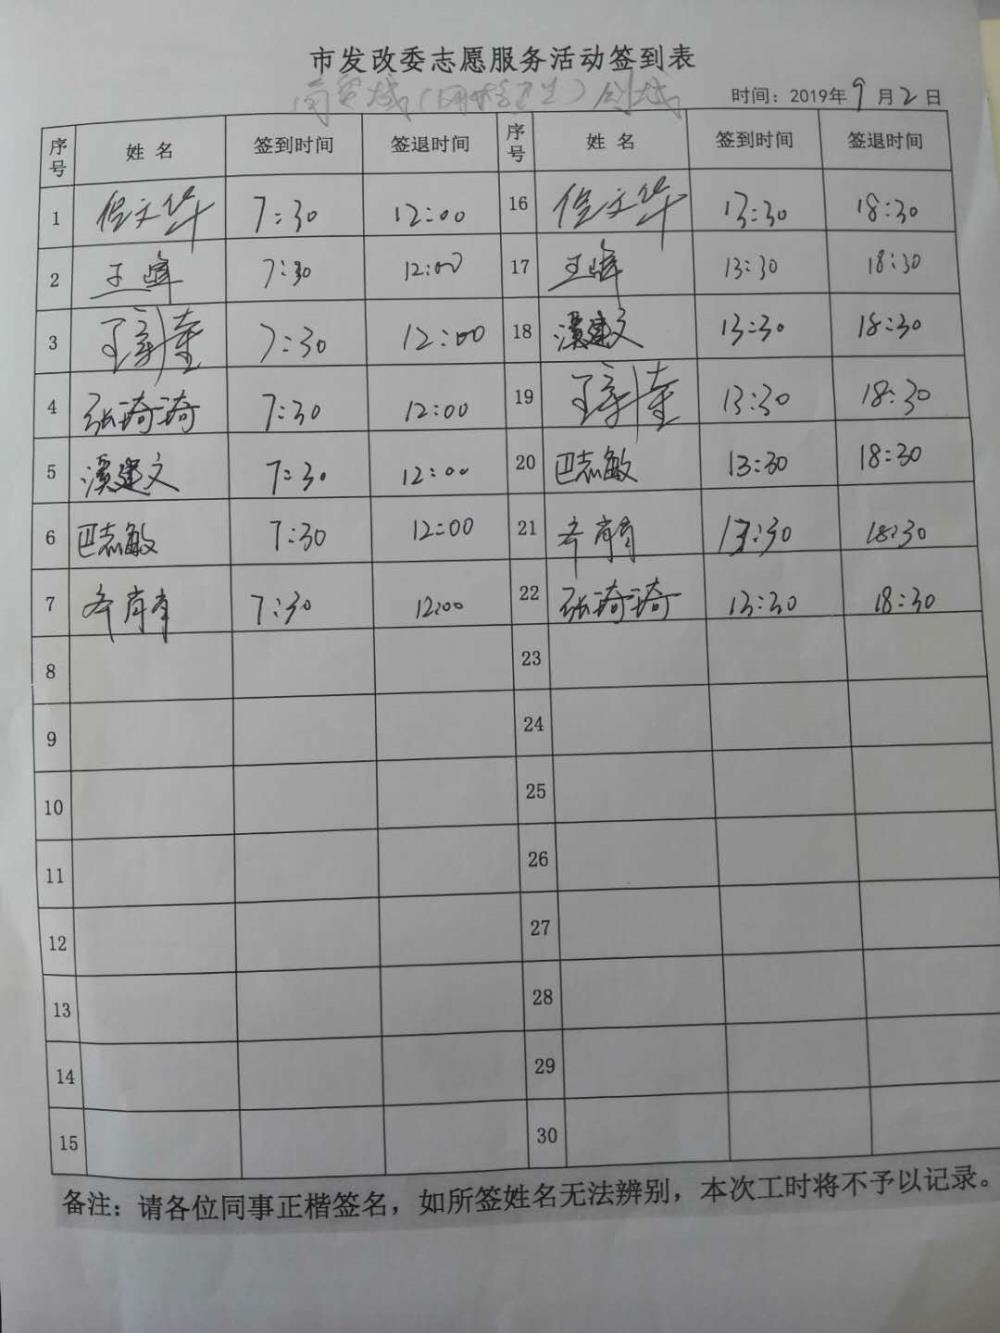 市发改委志愿服务活动签到表
时间：2019年9月2日
序号 姓名 签到时间 签退时间 序号 姓名 签到时间 签退时间
1 文华 7:30 12:00 16 文华 13:30 18:30
2 王峰 7:30 12:00 17 王峰 13:30 18:30
3 7:30 12:00 18 溪建文 13:30 18:30
4 张琦琦 7:30 12:00 19 13:30 18:30
5 溪建文 7:30 12:00 20 巴志敏 13:30 18:30
6 巴志敏 7:30 12:00 21 13:30 18:30
7 7:30 12:00 22 张琦琦 13:30 18:30
8 23
9 24
10 25
11 26
12 27
13 28
14 29
15 30
备注：请各位同事正楷签名，如所签姓名无法辨别，本次工时将不予以记录。